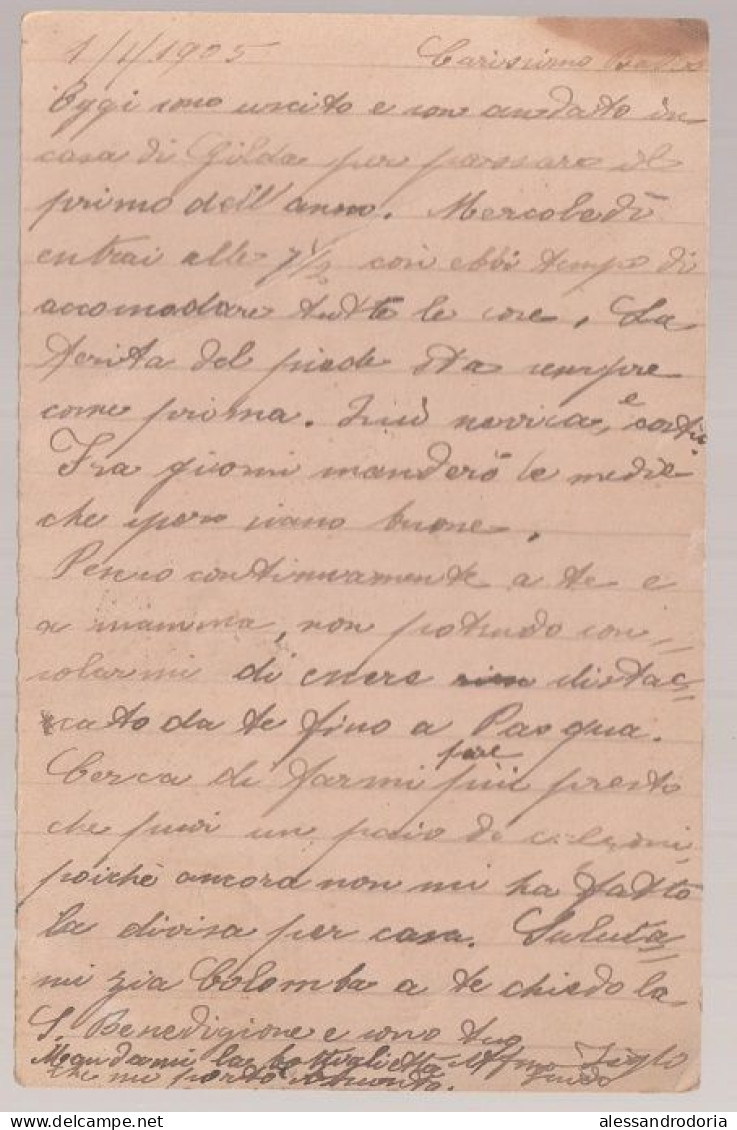 1/1/1905 Carissimo
Oggi sono uscito e son andato in
casa di Gilda per passare il
primo dell'anno. Mercoledì
entrai alle 7½ così ebbi tempo di
accomodare tutte le cose. La
ferita del piede sta sempre
come prima. Qui nevica, e
Fra giorni manderò le medie
che spero siano buone.
Penso continuamente a te e
a mamma, non potendo con=
solarmi di essere distac=
cato da te fino a Pasqua.
Cerca di farmi fare più presto
che puoi un paio di calzoni
poichè ancora non mi ha fatto
la divisa per casa. Saluta=
mi zia Colomba a te chiedo la
S. Benedizione e sono tuo
Mandami la Affmo Figlio
che mi Guido
alessandrodoria